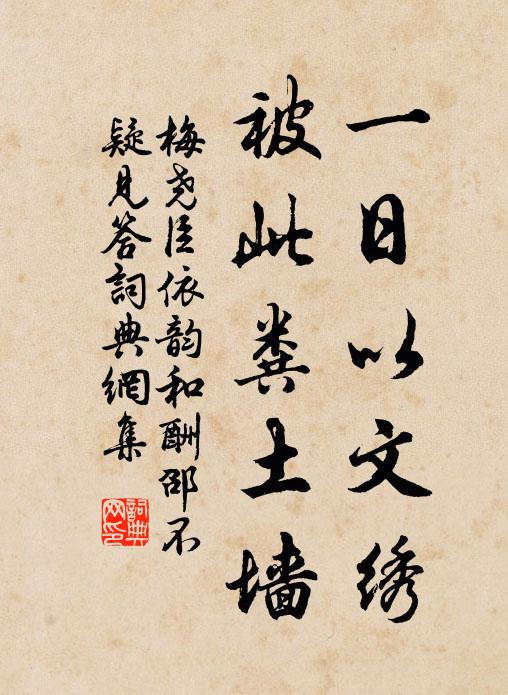 一日以文绣
被此粪土墙
梅尧臣依韵和酬邵不
疑见答詞典網集
詞典
网印